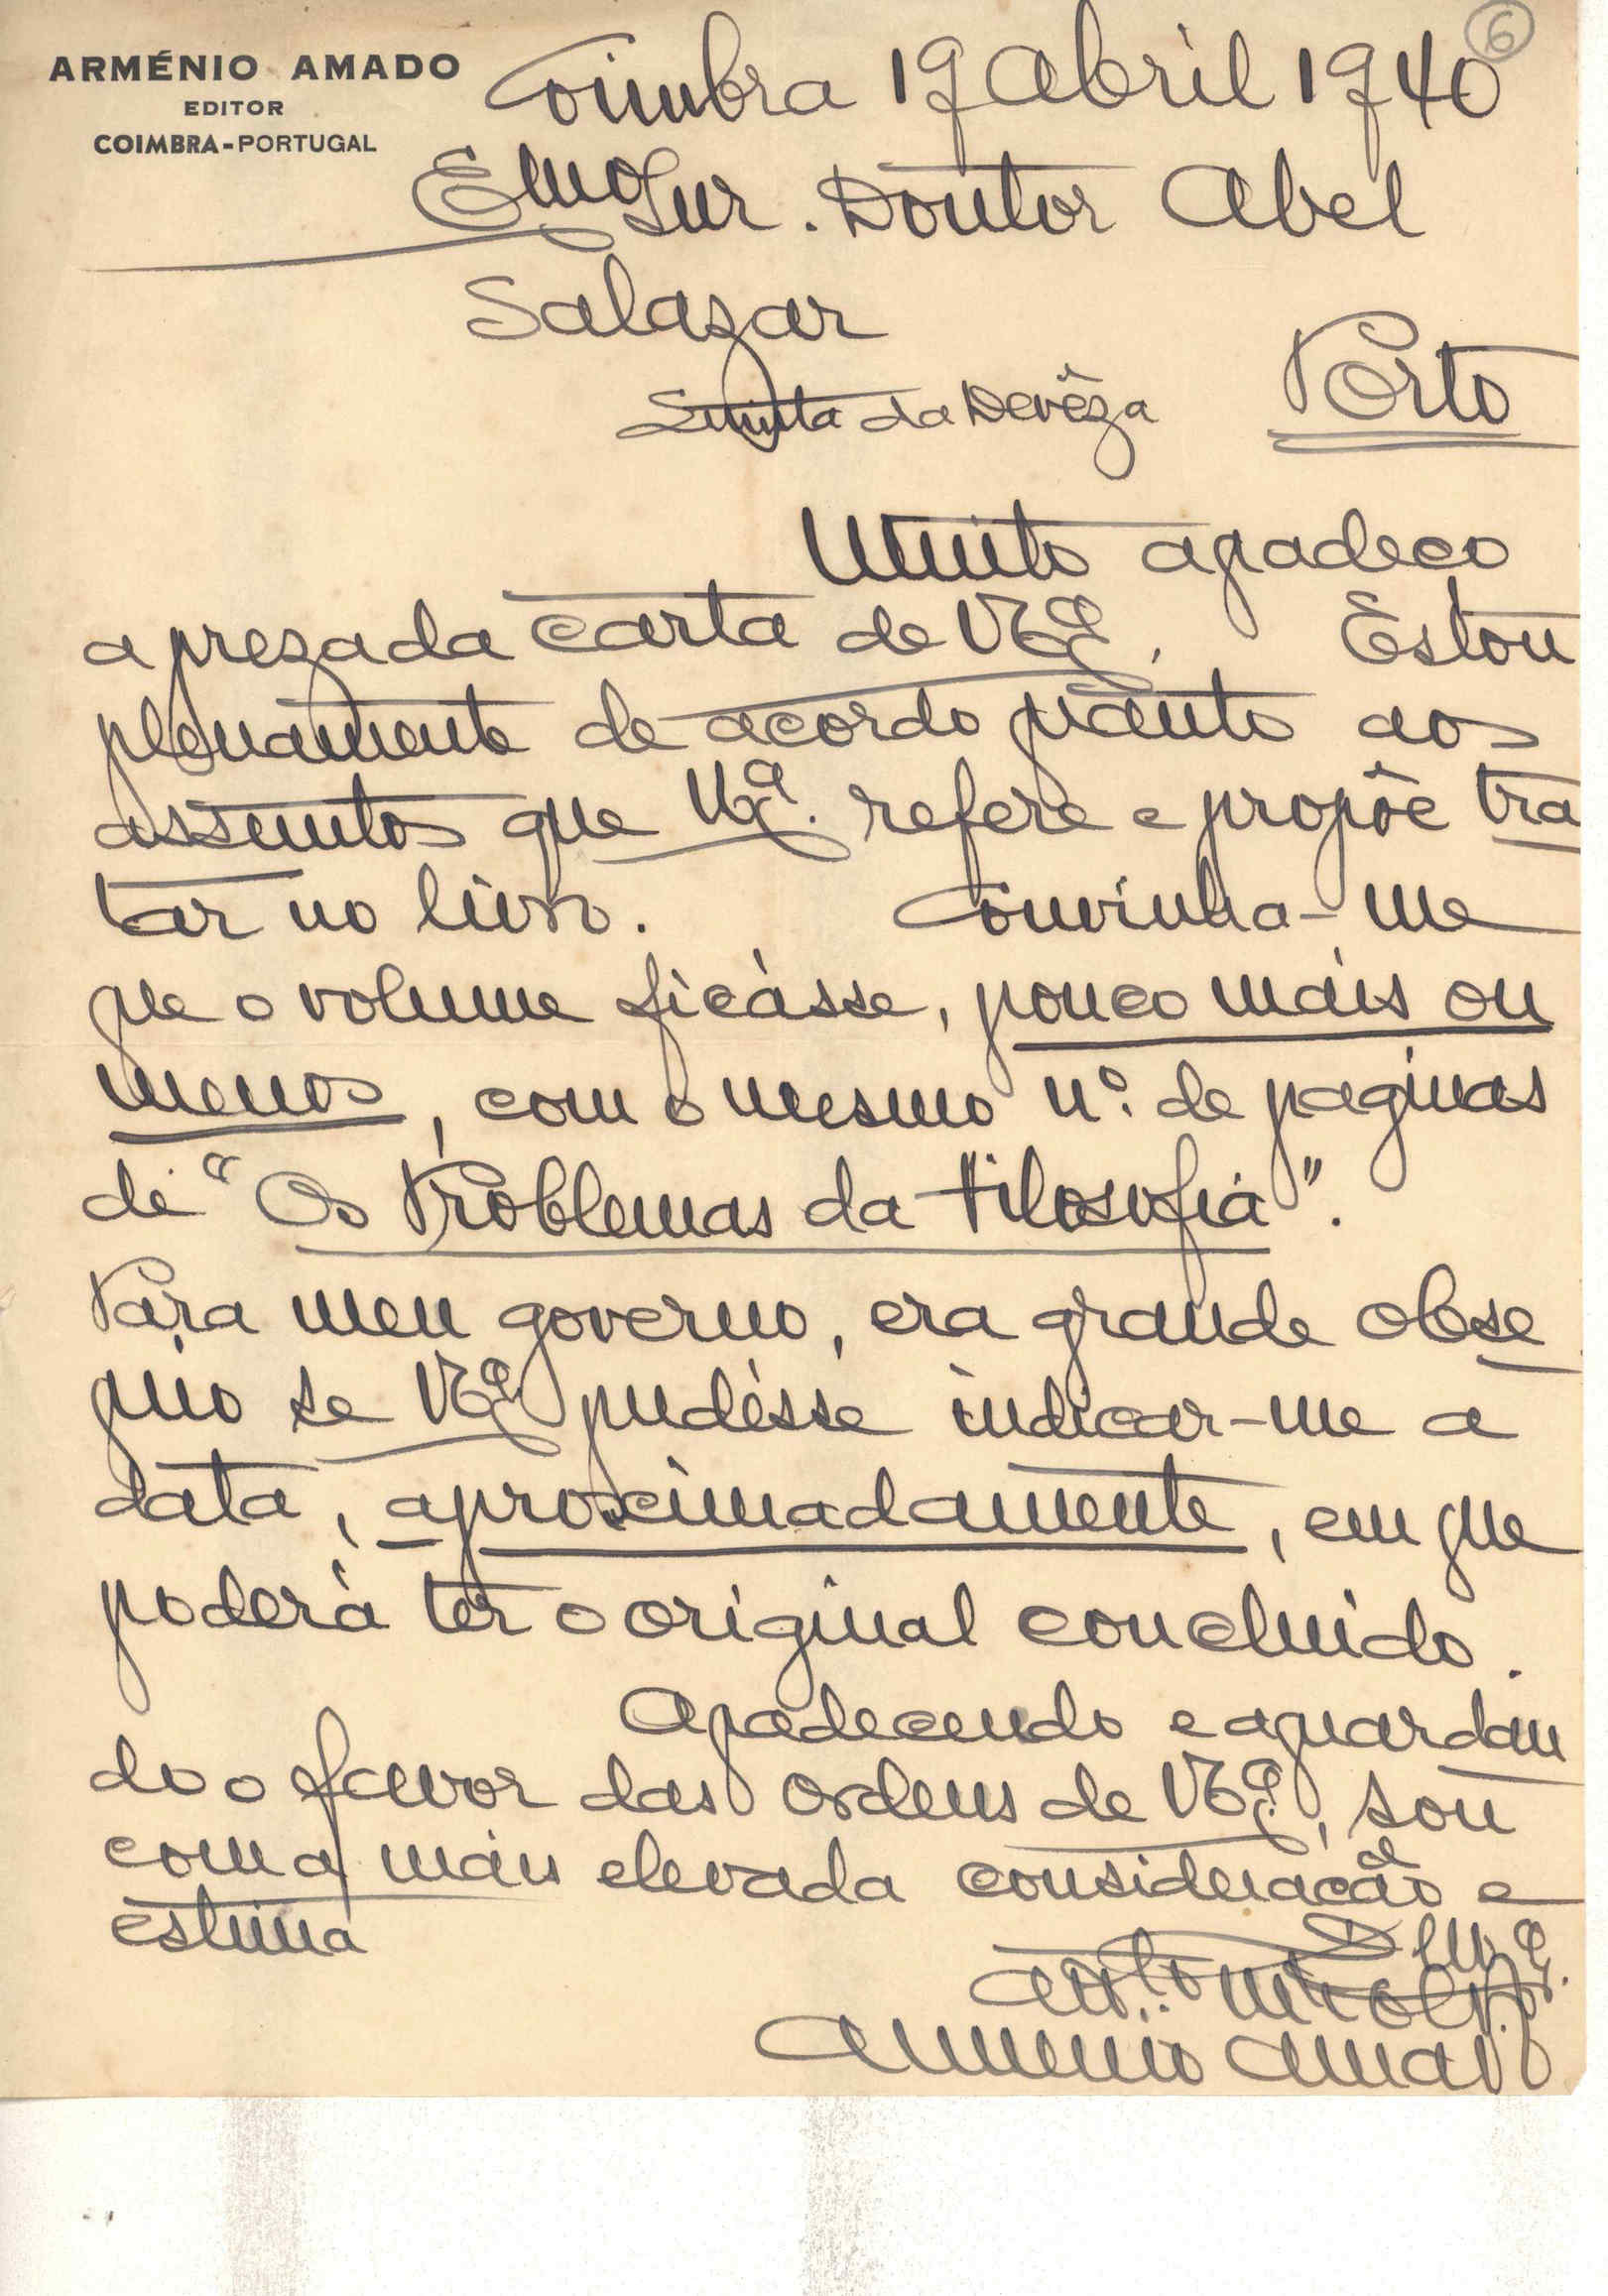 6
ARMÉNIO AMADO
EDITOR
COIMBRA-PORTUGAL
Coimbra 19 Abril 1940
Emo Snr. Doutor Abel
Salazar
Quinta da Devêza Porto
Muito agradeço
a prezada carta de V. Ex.ª. Estou
plenamente de acordo quanto aos
assuntos que V. Ex.ª. refere e propõe tra
tar no livro. Convinha-me
que o volume ficásse, pouco mais ou
menos, com o mesmo nº. de paginas
de "Os Problemas da Filosofia".
Para meu governo, era grande obse
quio se V. Ex.ª pudésse indicar-me a
data, aproximadamente, em que
poderá ter o original concluido.
Agradecendo e aguardan
do o favor das ordens de V. Ex.ª, sou
com a mais elevada consideração e
estima
De V. Ex.ª.
Att.o
Arménio Amado